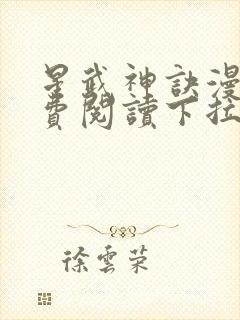 星武神訣漫
費閱讀下拉
徐雲榮